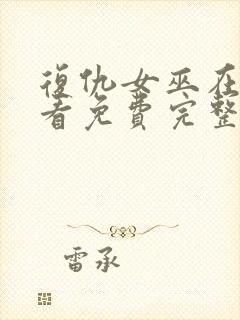 復仇女巫在
看免費完整
雷承